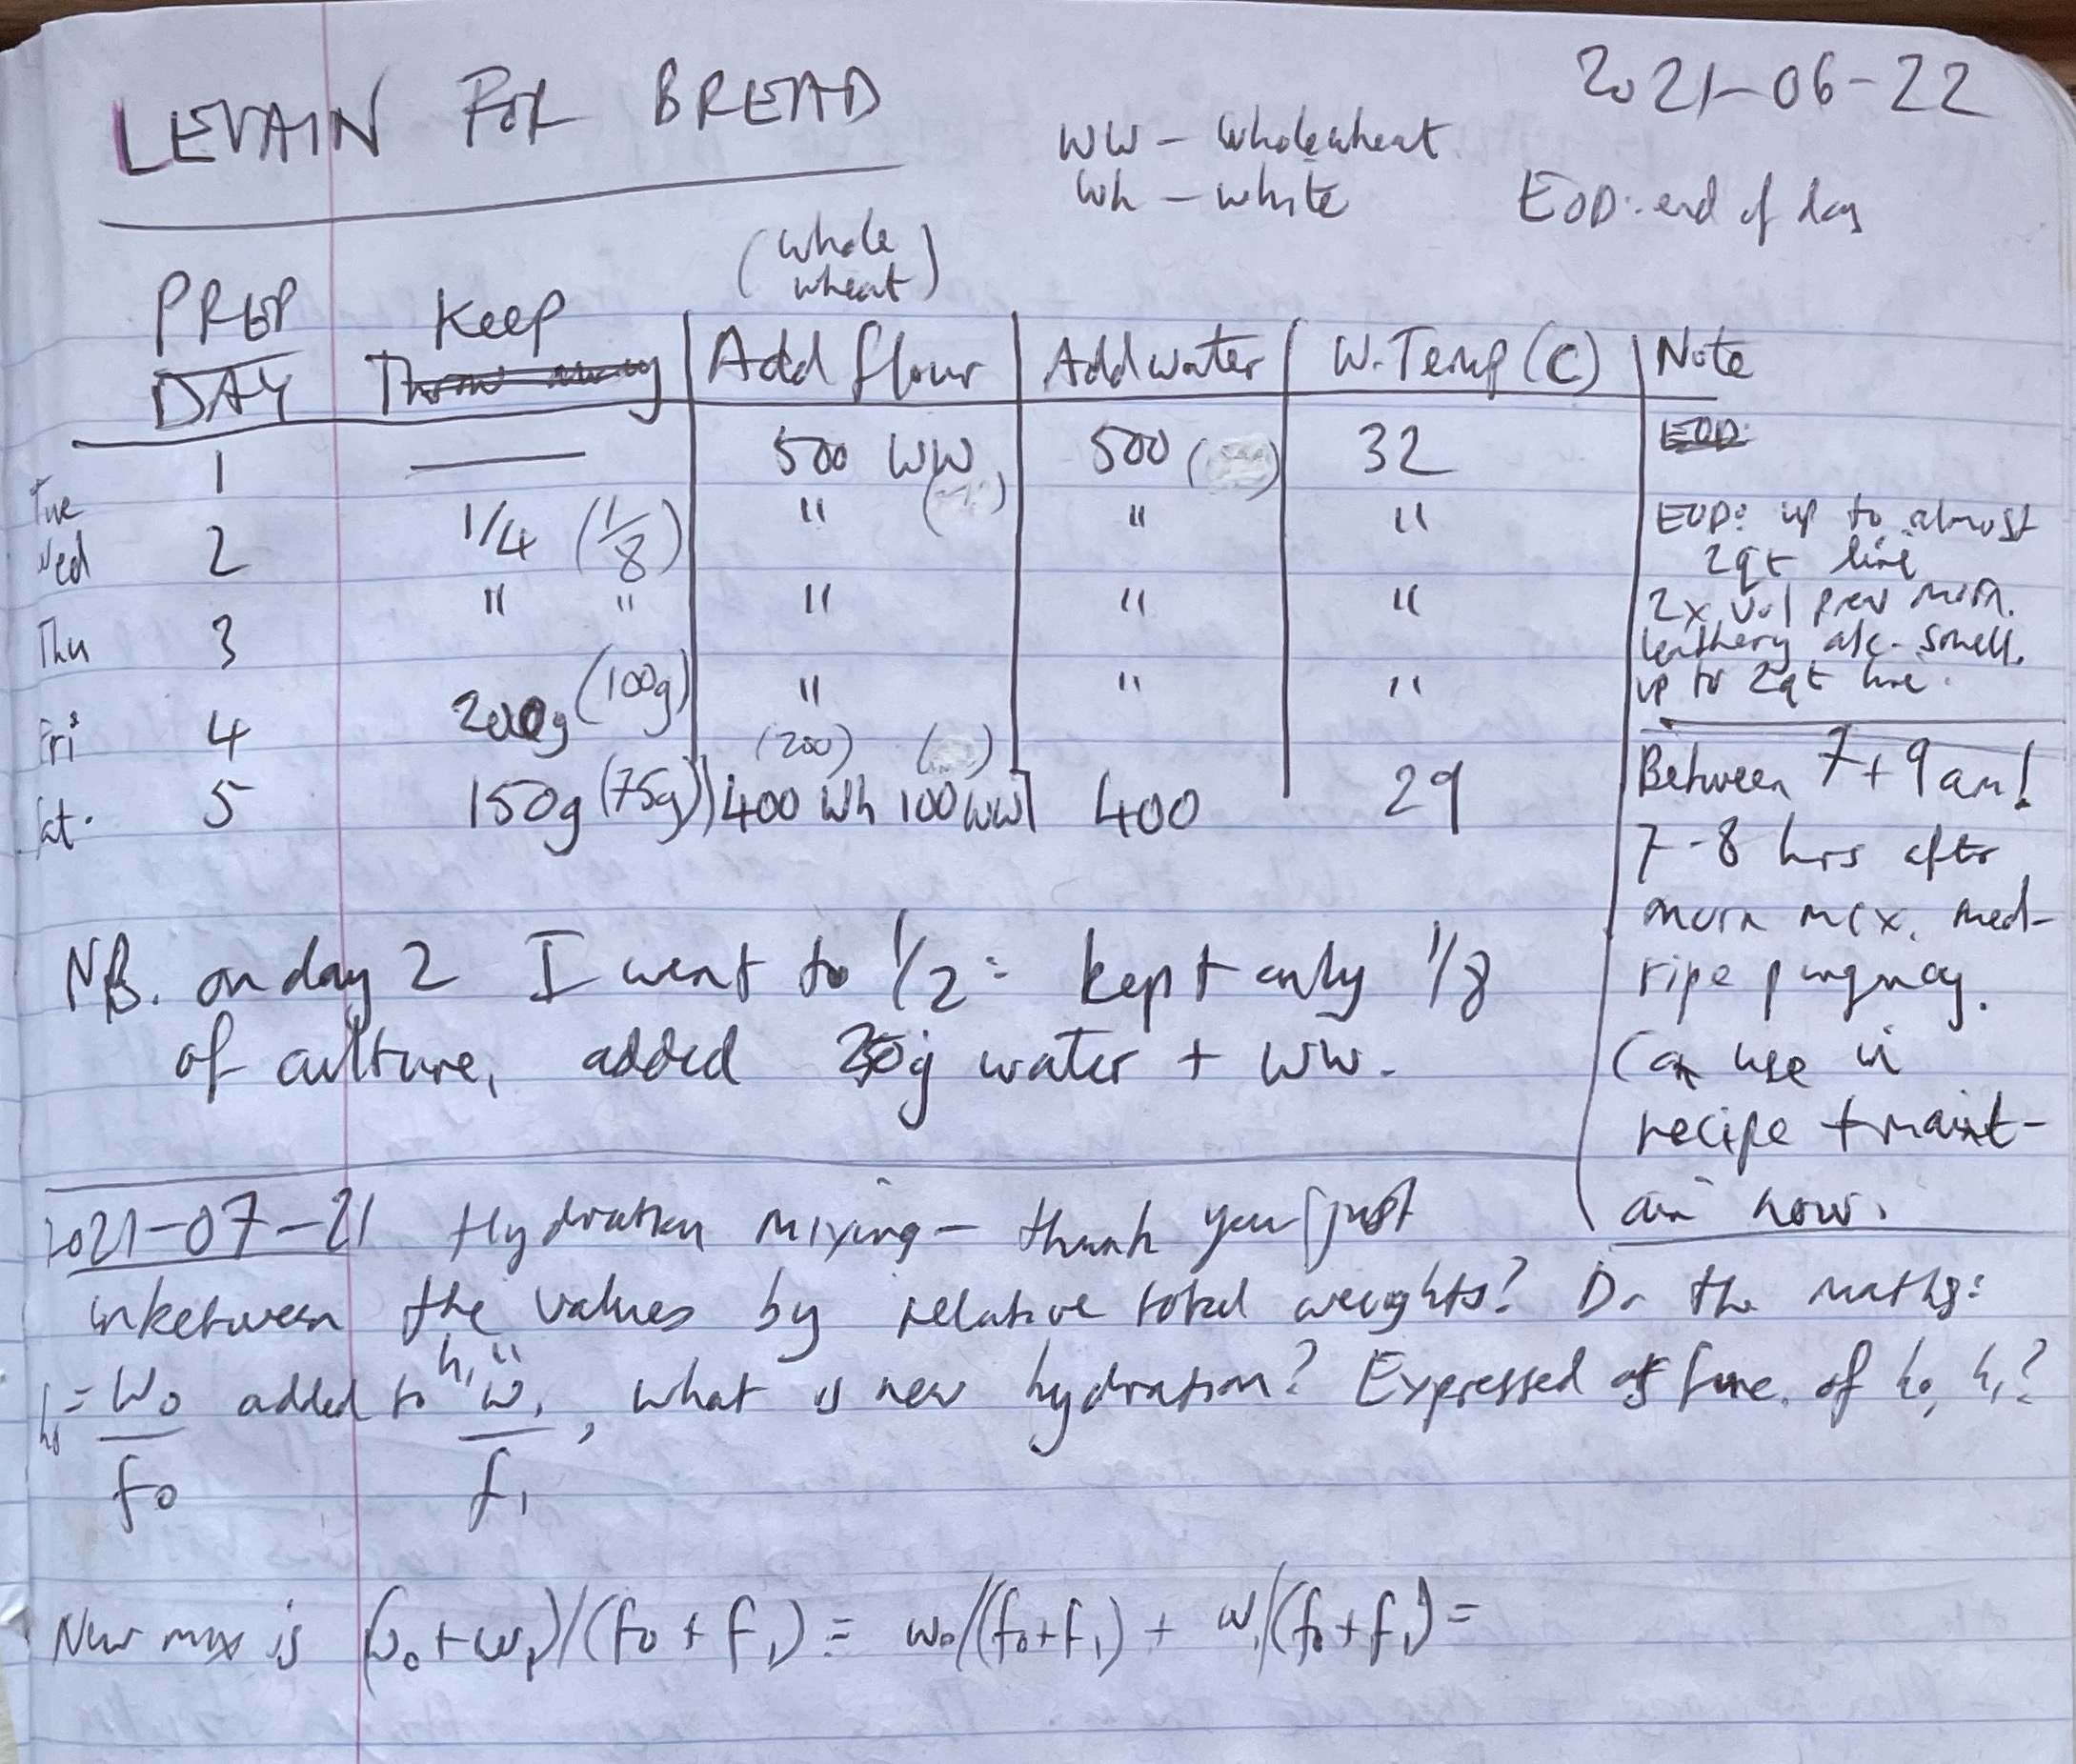 2021-06-22
LEVAIN FOR BREAD
WW - Wholewheat
Wh - white
EOD: end of day
(whole wheat)
PREP DAY | Keep | Add flour | Add water | W. Temp (C) | Note
Tue 1 | — | 500 WW | 500 | 32
Wed 2 | 1/4 (1/8) | " | " | " | EOD: up to almost
2qt line
Thu 3 | " " | " | " | " | 2x vol prev morn.
leathery alc. smell.
up to 2qt line.
Fri 4 | 200g (100g) | " | " | "
(200)
Sat. 5 | 150g (75g) | 400 Wh 100 WW | 400 | 29
Between 7 + 9 am!
7-8 hrs after
morn mix. med-
ripe pungncy.
Can use in
recipe + maint-
ain now.
NB. on day 2 I went to 1/2: kept only 1/8
of culture, added g water + WW.
2021-07-21 Hydration mixing - think you just
inbetween the values by relative total weights? Do the maths:
h0 = w0/f0 added to h1 " w1/f1, what is new hydration? Expressed as func. of h0, h1?
New mix is (w0+w1)/(f0+f1) = w0/(f0+f1) + w1/(f0+f1) =